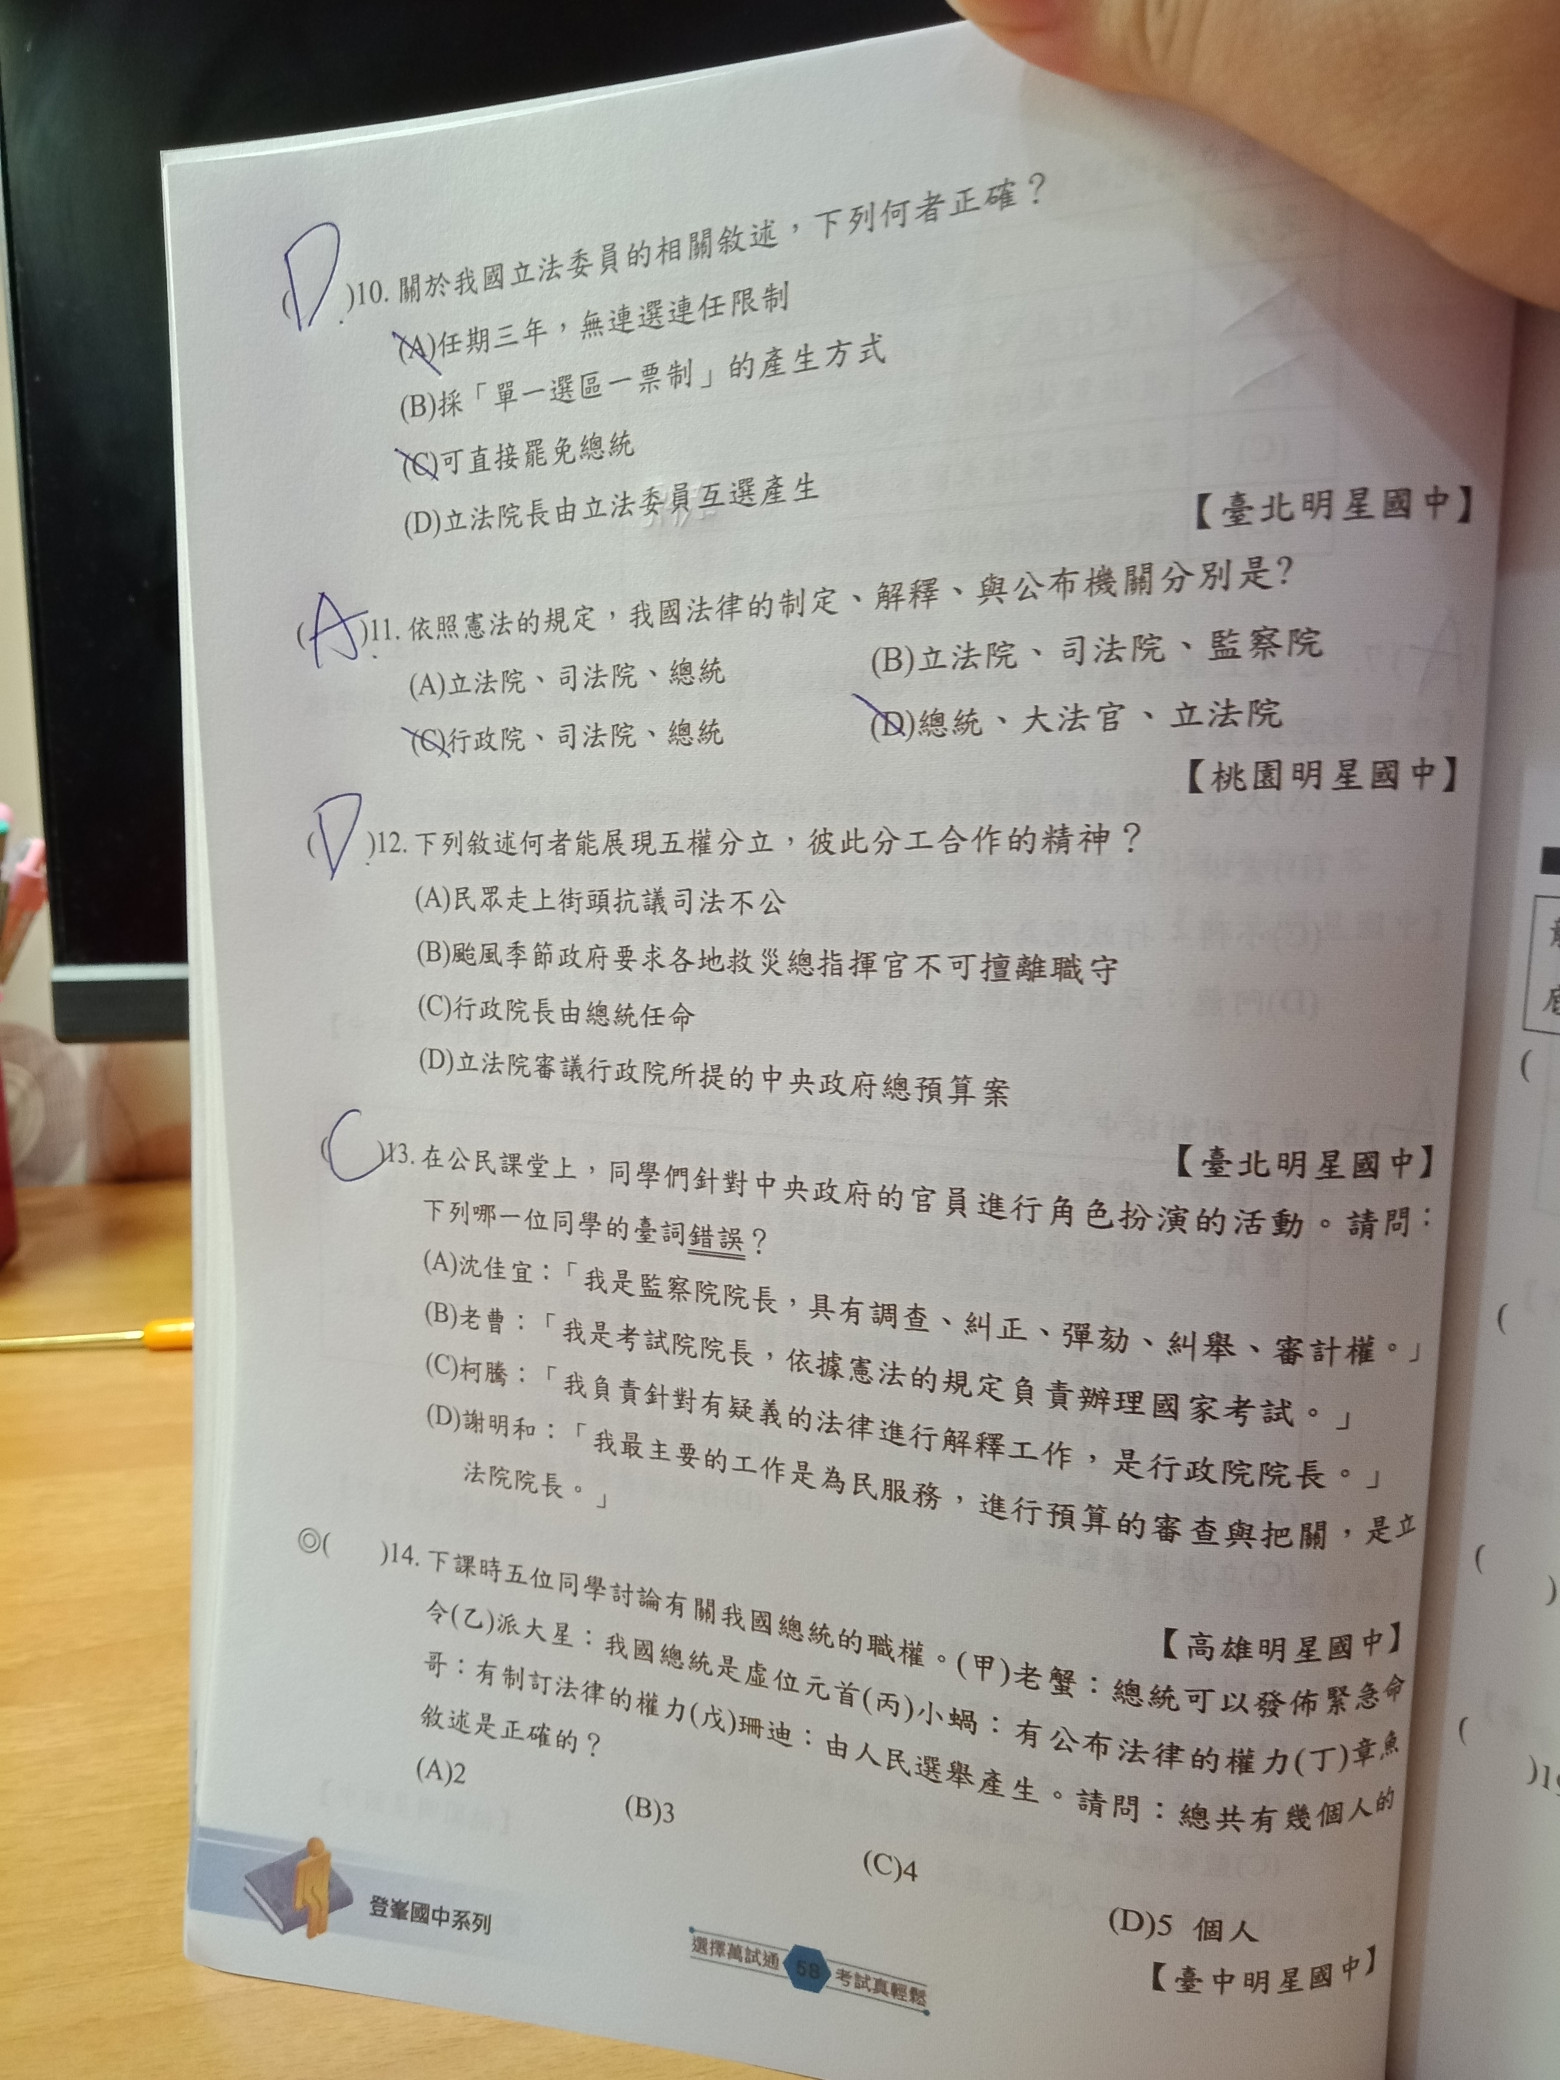 (D)10. 關於我國立法委員的相關敘述，下列何者正確？
(A)任期三年，無連選連任限制
(B)採「單一選區一票制」的產生方式
(C)可直接罷免總統
(D)立法院長由立法委員互選產生
【臺北明星國中】
(A)11. 依照憲法的規定，我國法律的制定、解釋、與公布機關分別是?
(A)立法院、司法院、總統 (B)立法院、司法院、監察院
(C)行政院、司法院、總統 (D)總統、大法官、立法院
【桃園明星國中】
(D)12. 下列敘述何者能展現五權分立，彼此分工合作的精神？
(A)民眾走上街頭抗議司法不公
(B)颱風季節政府要求各地救災總指揮官不可擅離職守
(C)行政院長由總統任命
(D)立法院審議行政院所提的中央政府總預算案
【臺北明星國中】
(C)13. 在公民課堂上，同學們針對中央政府的官員進行角色扮演的活動。請問：
下列哪一位同學的臺詞錯誤？
(A)沈佳宜：「我是監察院院長，具有調查、糾正、彈劾、糾舉、審計權。」
(B)老曹：「我是考試院院長，依據憲法的規定負責辦理國家考試。」
(C)柯騰：「我負責針對有疑義的法律進行解釋工作，是行政院院長。」
(D)謝明和：「我最主要的工作是為民服務，進行預算的審查與把關，是立
法院院長。」
【高雄明星國中】
◎( )14. 下課時五位同學討論有關我國總統的職權。(甲)老蟹：總統可以發佈緊急命
令(乙)派大星：我國總統是虛位元首(丙)小蝸：有公布法律的權力(丁)章魚
哥：有制訂法律的權力(戊)珊迪：由人民選舉產生。請問：總共有幾個人的
敘述是正確的？
(A)2 (B)3 (C)4 (D)5 個人
【臺中明星國中】
登峯國中系列
選擇萬試通 58 考試真輕鬆